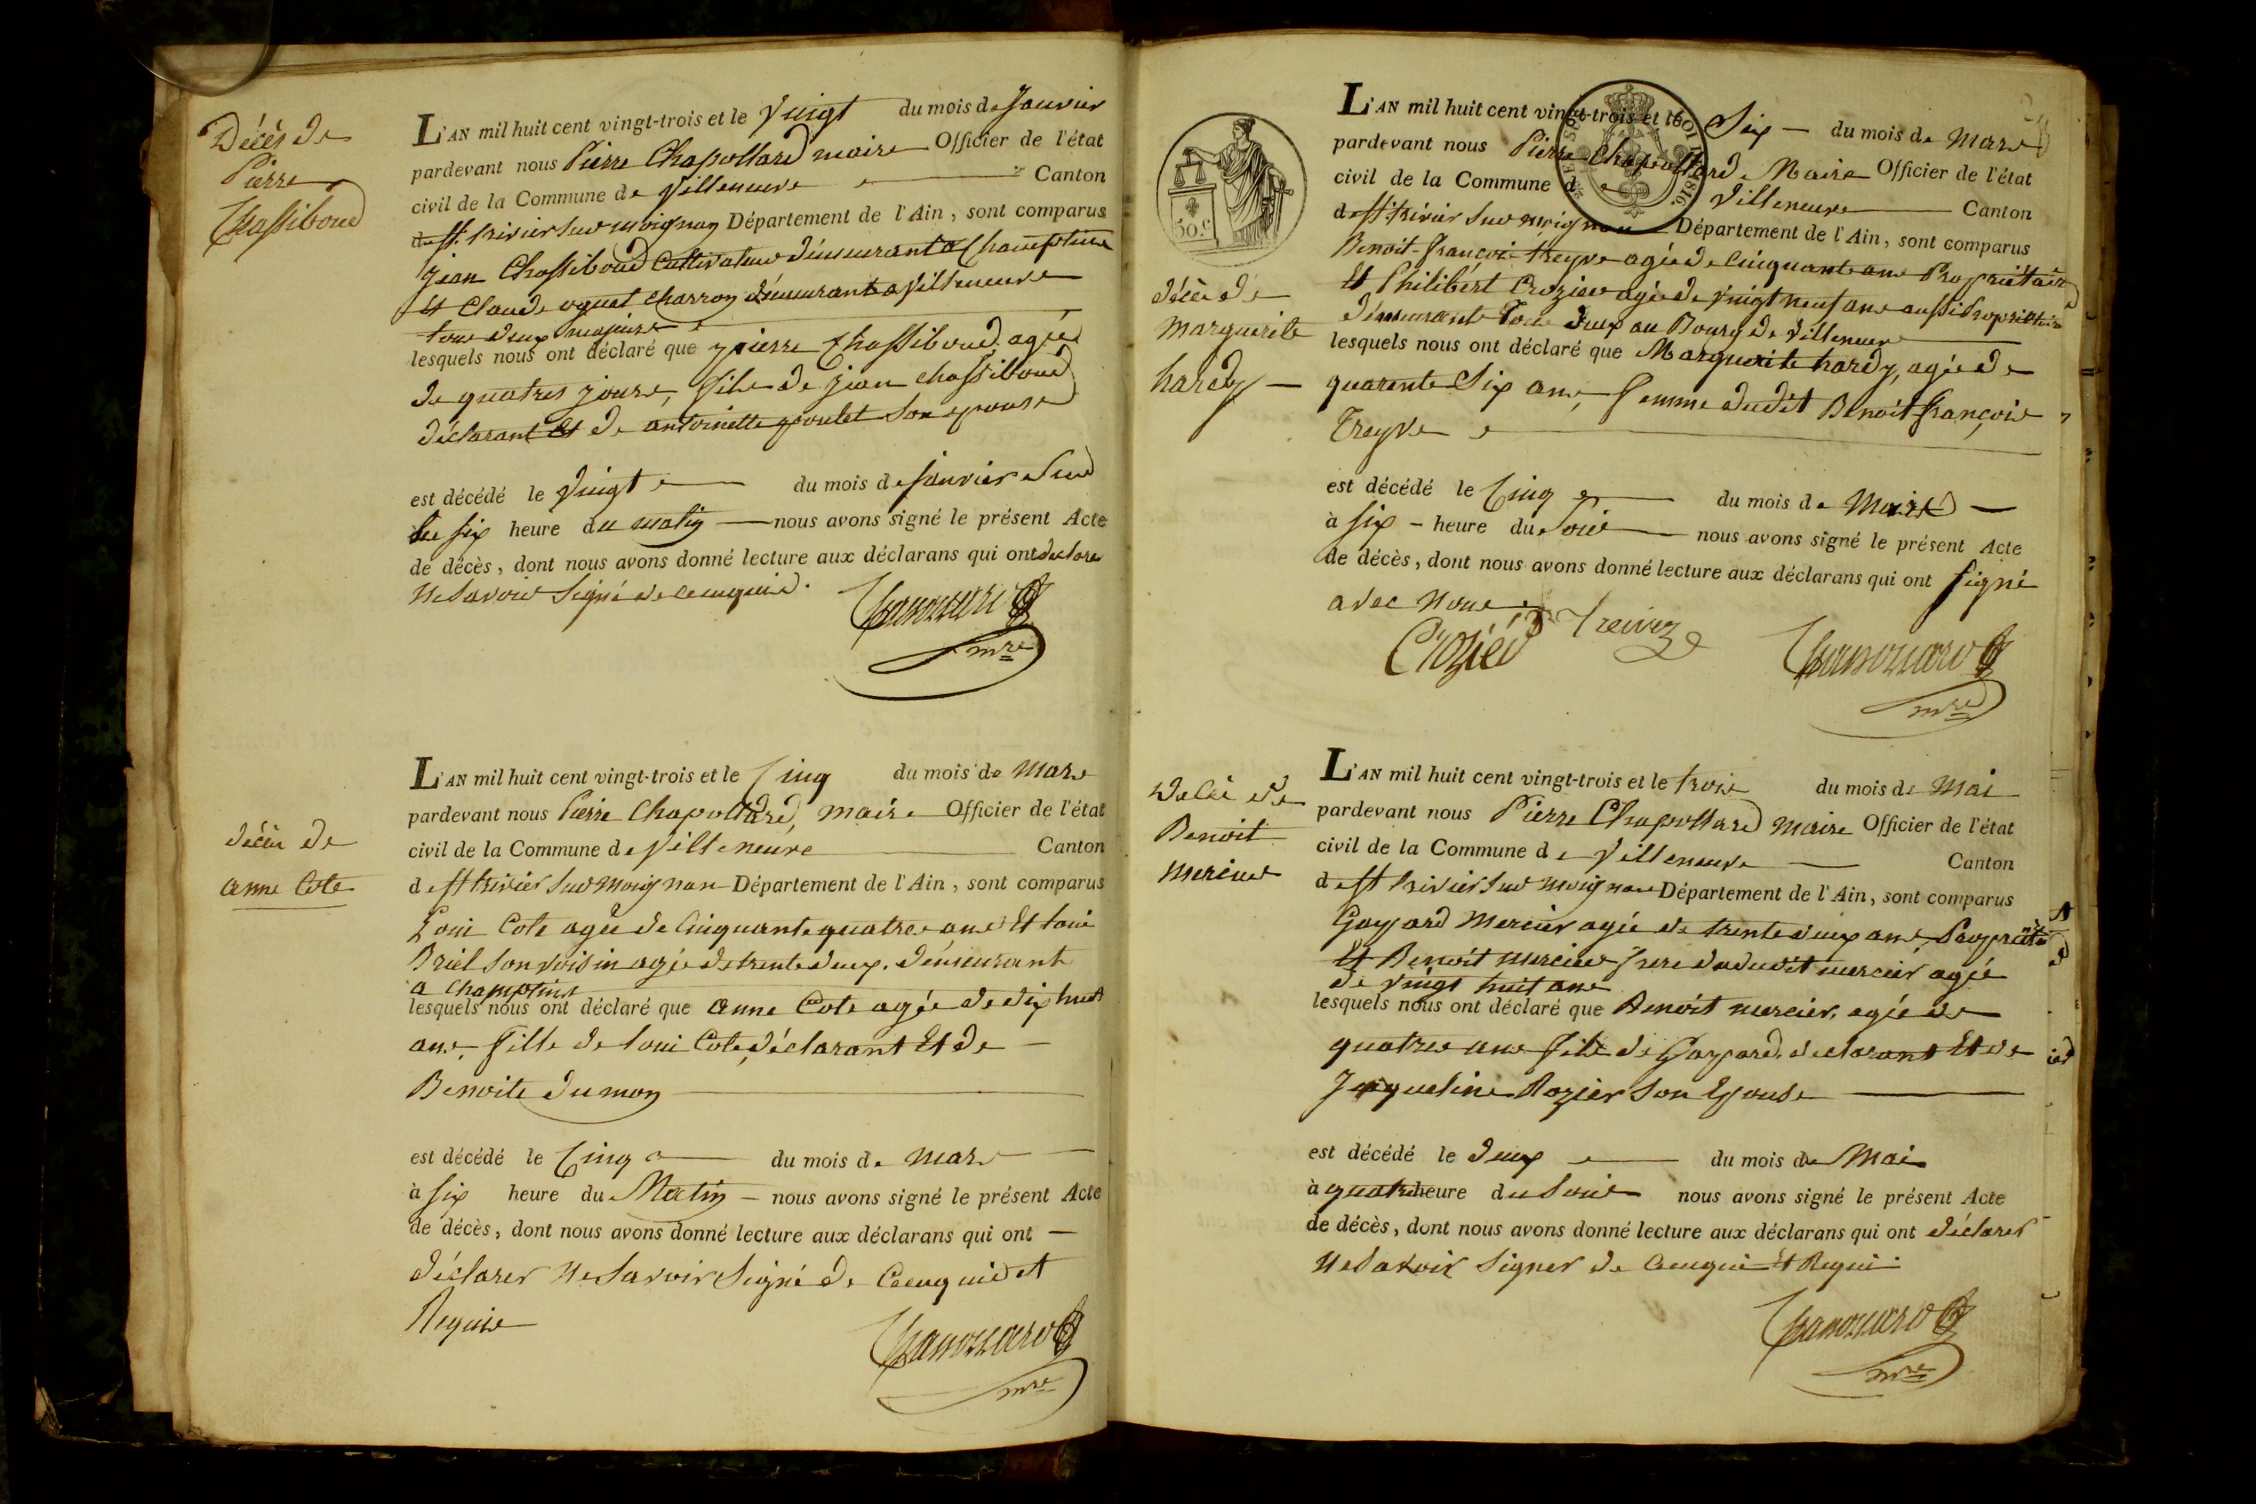 Décès de
Pierre
Chassiboud
L'AN mil huit cent vingt-trois et le vingt du mois de Janvier
pardevant nous Pierre Chapollard maire Officier de l'état
civil de la Commune de Villeneuve Canton
de st. trivier sur moignan Département de l'Ain, sont comparus
jean Chassiboud Cultivateur démeurant a Champtein
et Claude charron démeurant a Villeneuve
tous deux majeurs
lesquels nous ont déclaré que pierre Chassiboud agée
de quatres jours, fils de jean chassiboud
déclarant et de antoinette poulet son epouse
est décédé le vingt du mois de janvier
six heure du matin nous avons signé le présent Acte
de décès, dont nous avons donné lecture aux déclarans qui ont declare
ne savoir signé de ce enquis.
mre
décès de
anne Cote
L'AN mil huit cent vingt-trois et le Cinq du mois de mars
pardevant nous Pierre Chapollard, maire Officier de l'état
civil de la Commune de Villeneuve Canton
de st trivier sur moignan Département de l'Ain, sont comparus
Loui Cote agée de Cinquante quatre ans Et loui
Briel son voisin agée de trente deux. démeurant
a Champtein
lesquels nous ont déclaré que anne Cote agée de dix huit
ans, fille de loui Cote, déclarant Et de
Benoite dumon
est décédé le Cinq du mois de mars
à six heure du Matin nous avons signé le présent Acte
de décès, dont nous avons donné lecture aux déclarans qui ont
déclarer ne savoir signé de Ce enquis et
Requis
mre
50.c
décès de
marguerite
hardy
L'AN mil huit cent vingt-trois et le Six du mois de Mars
pardevant nous Pierre Chapollard Maire Officier de l'état
civil de la Commune de Villeneuve Canton
de st. trivier sur moignan Département de l'Ain, sont comparus
Benoit-françois treyve agée de Cinquante ans Propriétaire
et Philibert Crozier agée de vingt neuf ans aussi Propriétaire
démeurants Tous deux au Bourg de Villeneuve
lesquels nous ont déclaré que Marguerite hardy, agée de
quarente Six ans, femme dudit Benoit françois
Treyve
est décédé le Cinq du mois de Mars
à six heure du Soir nous avons signé le présent Acte
de décès, dont nous avons donné lecture aux déclarans qui ont signé
avec nous
Crozier
mre
Benoit
mercier
L'AN mil huit cent vingt-trois et le trois du mois de Mai
pardevant nous Pierre Chapollard maire Officier de l'état
civil de la Commune de Villeneuve Canton
de st trivier sur moignan Département de l'Ain, sont comparus
Gaspard Mercier agée de trente deux ans, Propriétaire
et Benoit mercier frere dudit mercier agée
de vingt huit ans
lesquels nous ont déclaré que Benoit mercier, agée de
quatres ans fils de Gaspard, declarant Et de
Jaqueline Rozier son Epouse
est décédé le deux du mois de Mai
à quatre heure du Soir nous avons signé le présent Acte
de décès, dont nous avons donné lecture aux déclarans qui ont déclarer
ne savoir signer de Ce enquis Et Requis.
mre